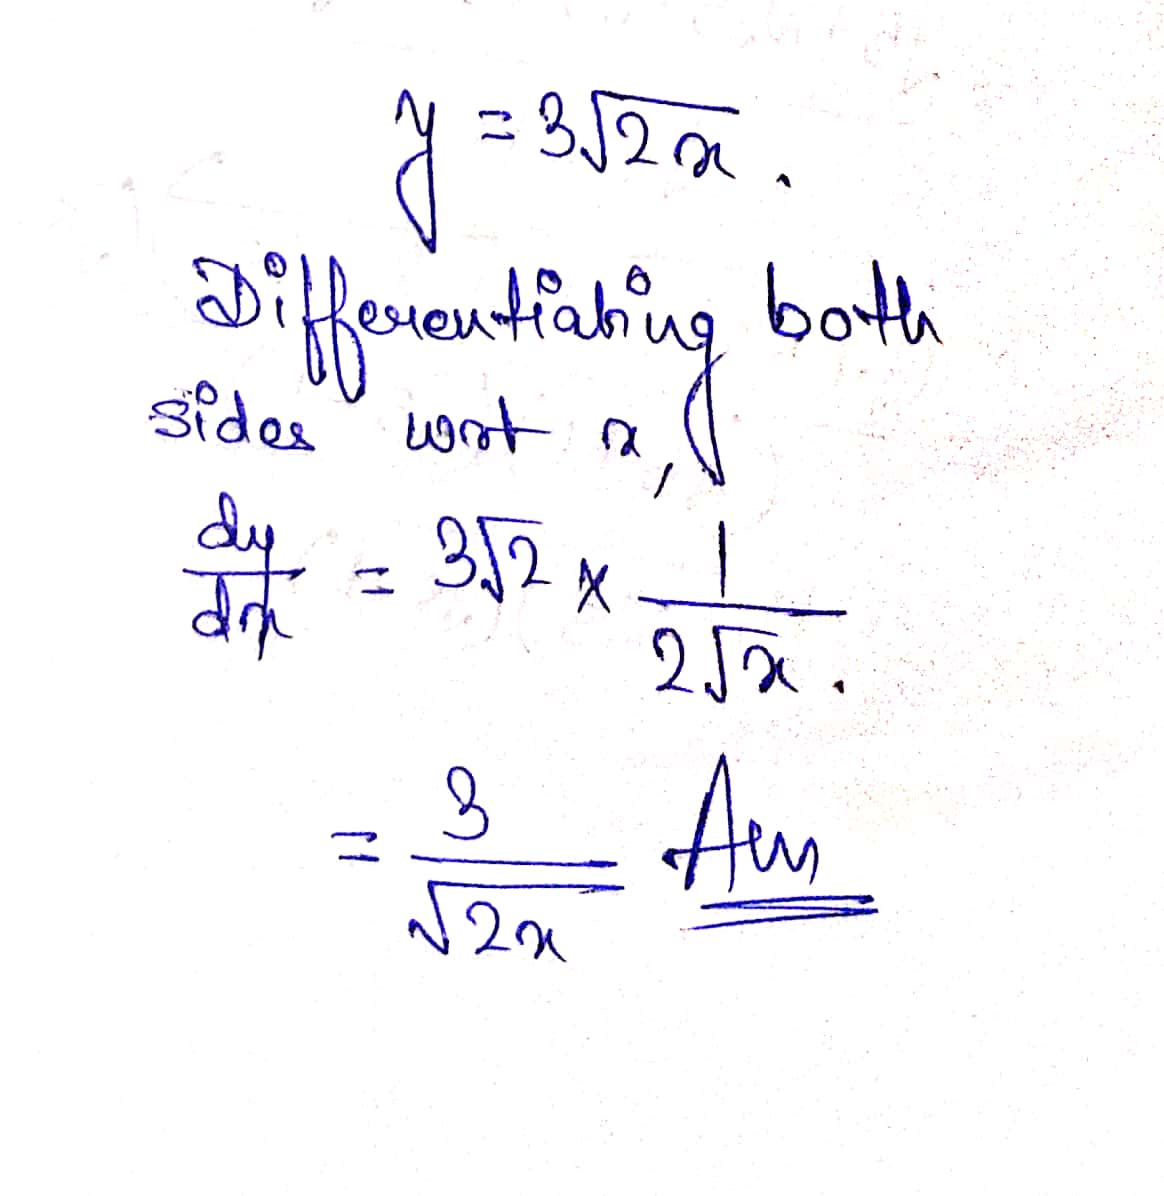 y = 3√2x .
Differentiating both
sides wrt x,
dy/dx = 3√2 × 1/2√x .
= 3/√2x Ans